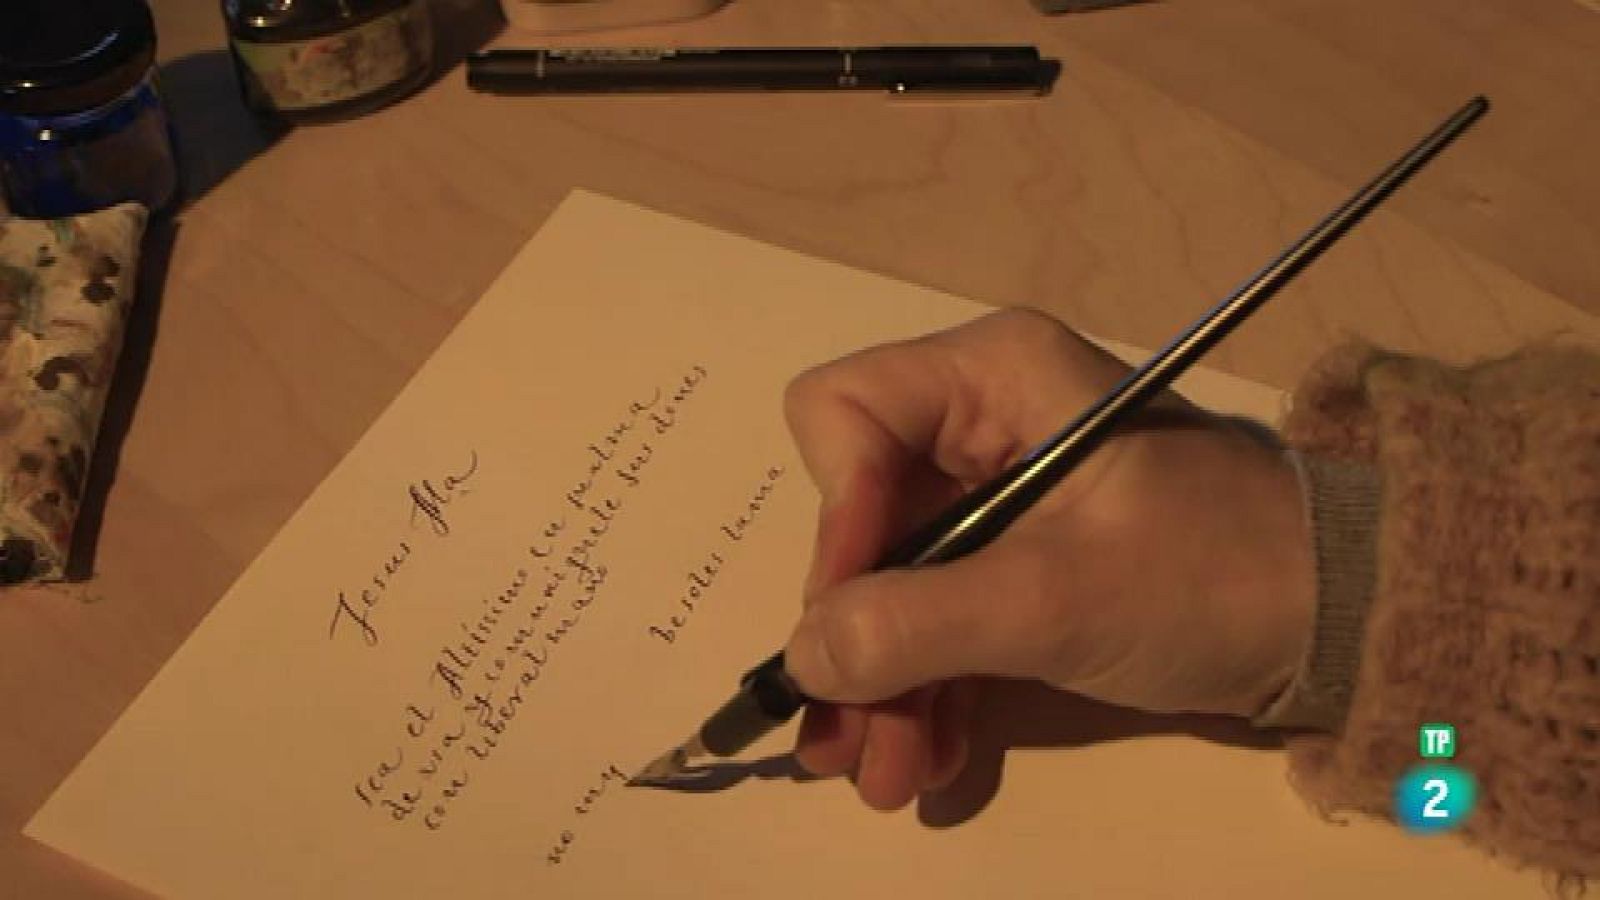 Jesus Ma
sea el Altissimo en pe alma
de va y comuniquele sus dones
con liberal mano
besoles lama
no muy
TP
2